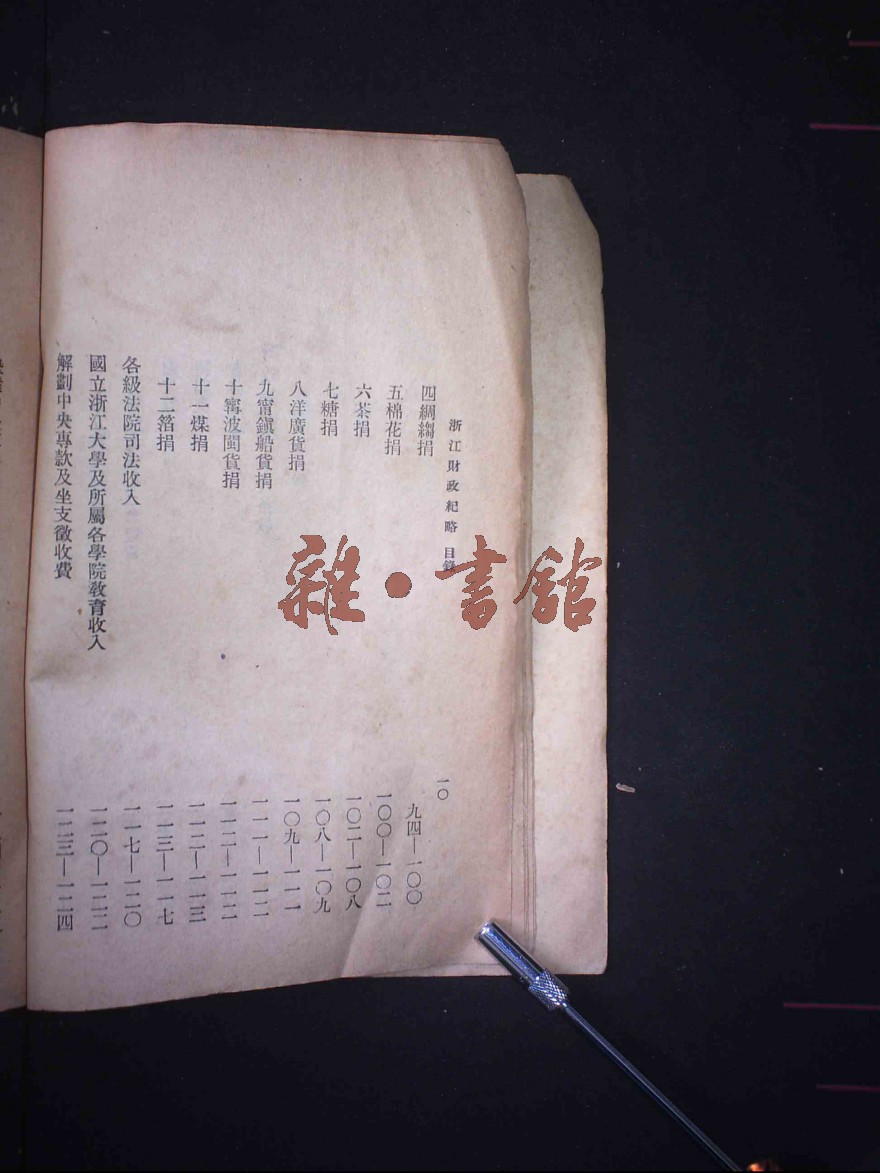 浙江財政紀略 目錄
一〇
四綢縐捐 九四—一〇〇
五棉花捐 一〇〇—一〇二
六茶捐 一〇二—一〇八
七糖捐 一〇八—一〇九
八洋廣貨捐 一〇九—一一一
九甯鎭船貨捐 一一一—一一二
十甯波閩貨捐 一一二—一一二
十一煤捐 一一二—一一三
十二箔捐 一一三—一一七
各級法院司法收入 一一七—一二〇
國立浙江大學及所屬各學院敎育收入 一二〇—一二二
解劃中央專款及坐支徵收費 一二三—一二四
雜·書館